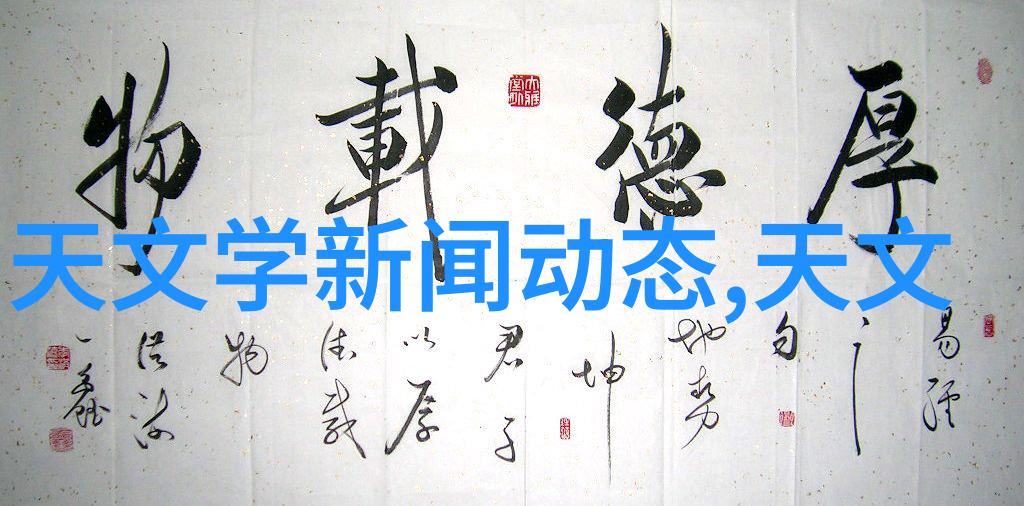 厚德載物
天文学新闻动态,天文
易經
之
句
地勢
坤
君子
以厚
德載
物